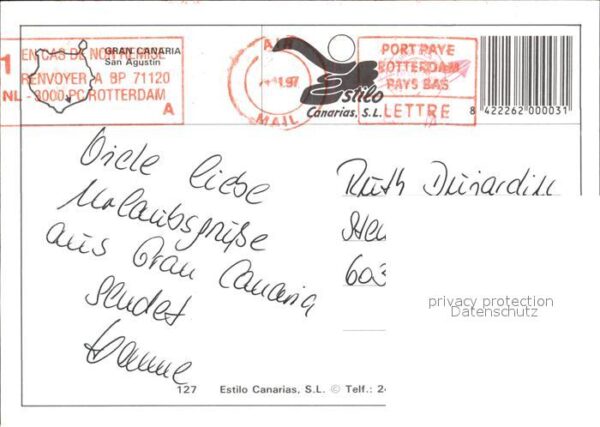 EN CAS DE NON REMISE
GRAN CANARIA
San Agustin
1
RENVOYER A BP 71120
NL - 3000 PC ROTTERDAM
A
AIR
1.97
MAIL
Estilo
Canarias, S.L.
PORT PAYE
ROTTERDAM
PAYS BAS
LETTRE
8 422262 000031
Viele liebe
Urlaubsgrüße
aus Gran Canaria
sendet
Ruth
603
privacy protection
Datenschutz
127 Estilo Canarias, S.L. © Telf.: 24